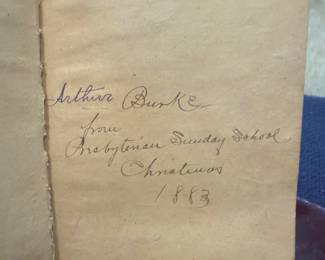 Arthur Burke
from
Presbyterian Sunday School
Christmas
1883